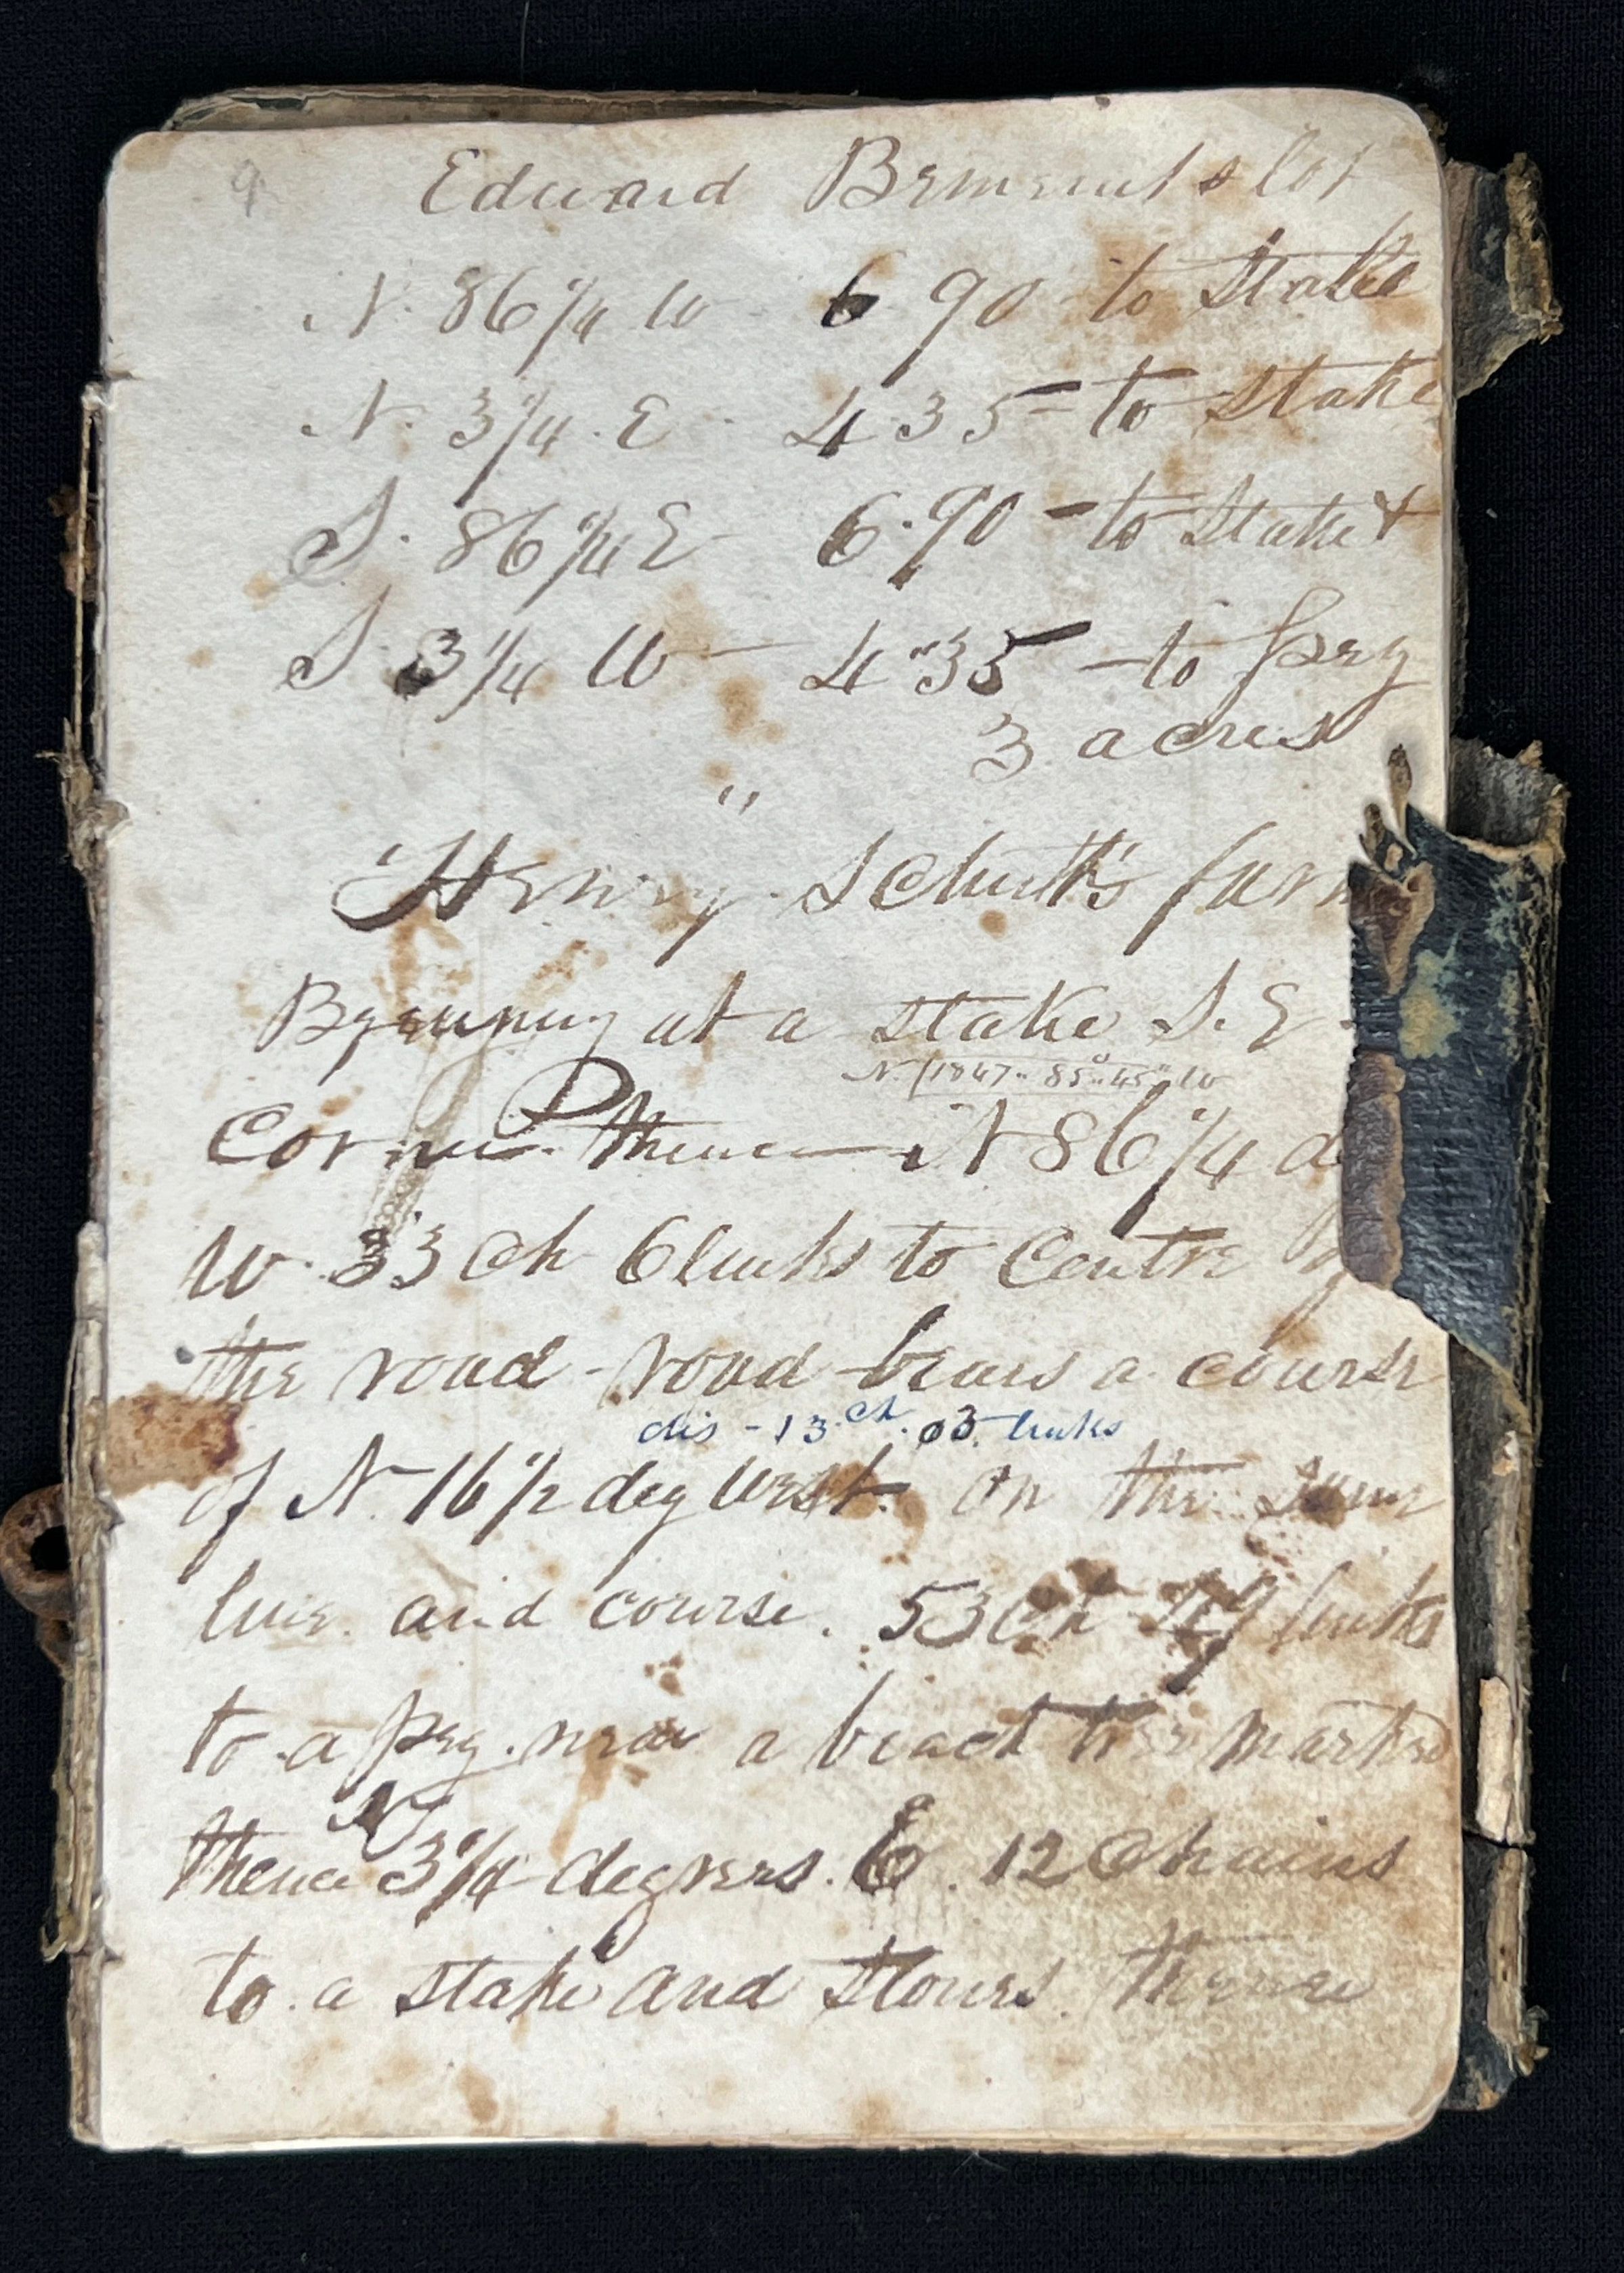 9
Edward Bement's lot
N. 86 1/4 W 6 90 - to Stake
N. 3 1/4 . E - 4 35 - to stake
S. 86 1/4 E 6.90 - to Stake &
S. 3 1/4 W - 4 "35 - to peg
3 acres
"
Henry Schutt's farm
Begining at a stake S. E.
N. (1847 .. 85° .. 45" W
Corner. thence N 86 1/4 d
W. 33 Ch 6 links to Centre of
the road - road bears a course
dis - 13 ch. 03. links
of N. 16 1/2 deg West. on the same
line. and course. 53 Ch 49 links
to a peg. near a beach tree marked
thence N 3 1/4 degrees. E. 12 Chains
to. a stake and stones. thence
Genesee Country Village & Museum